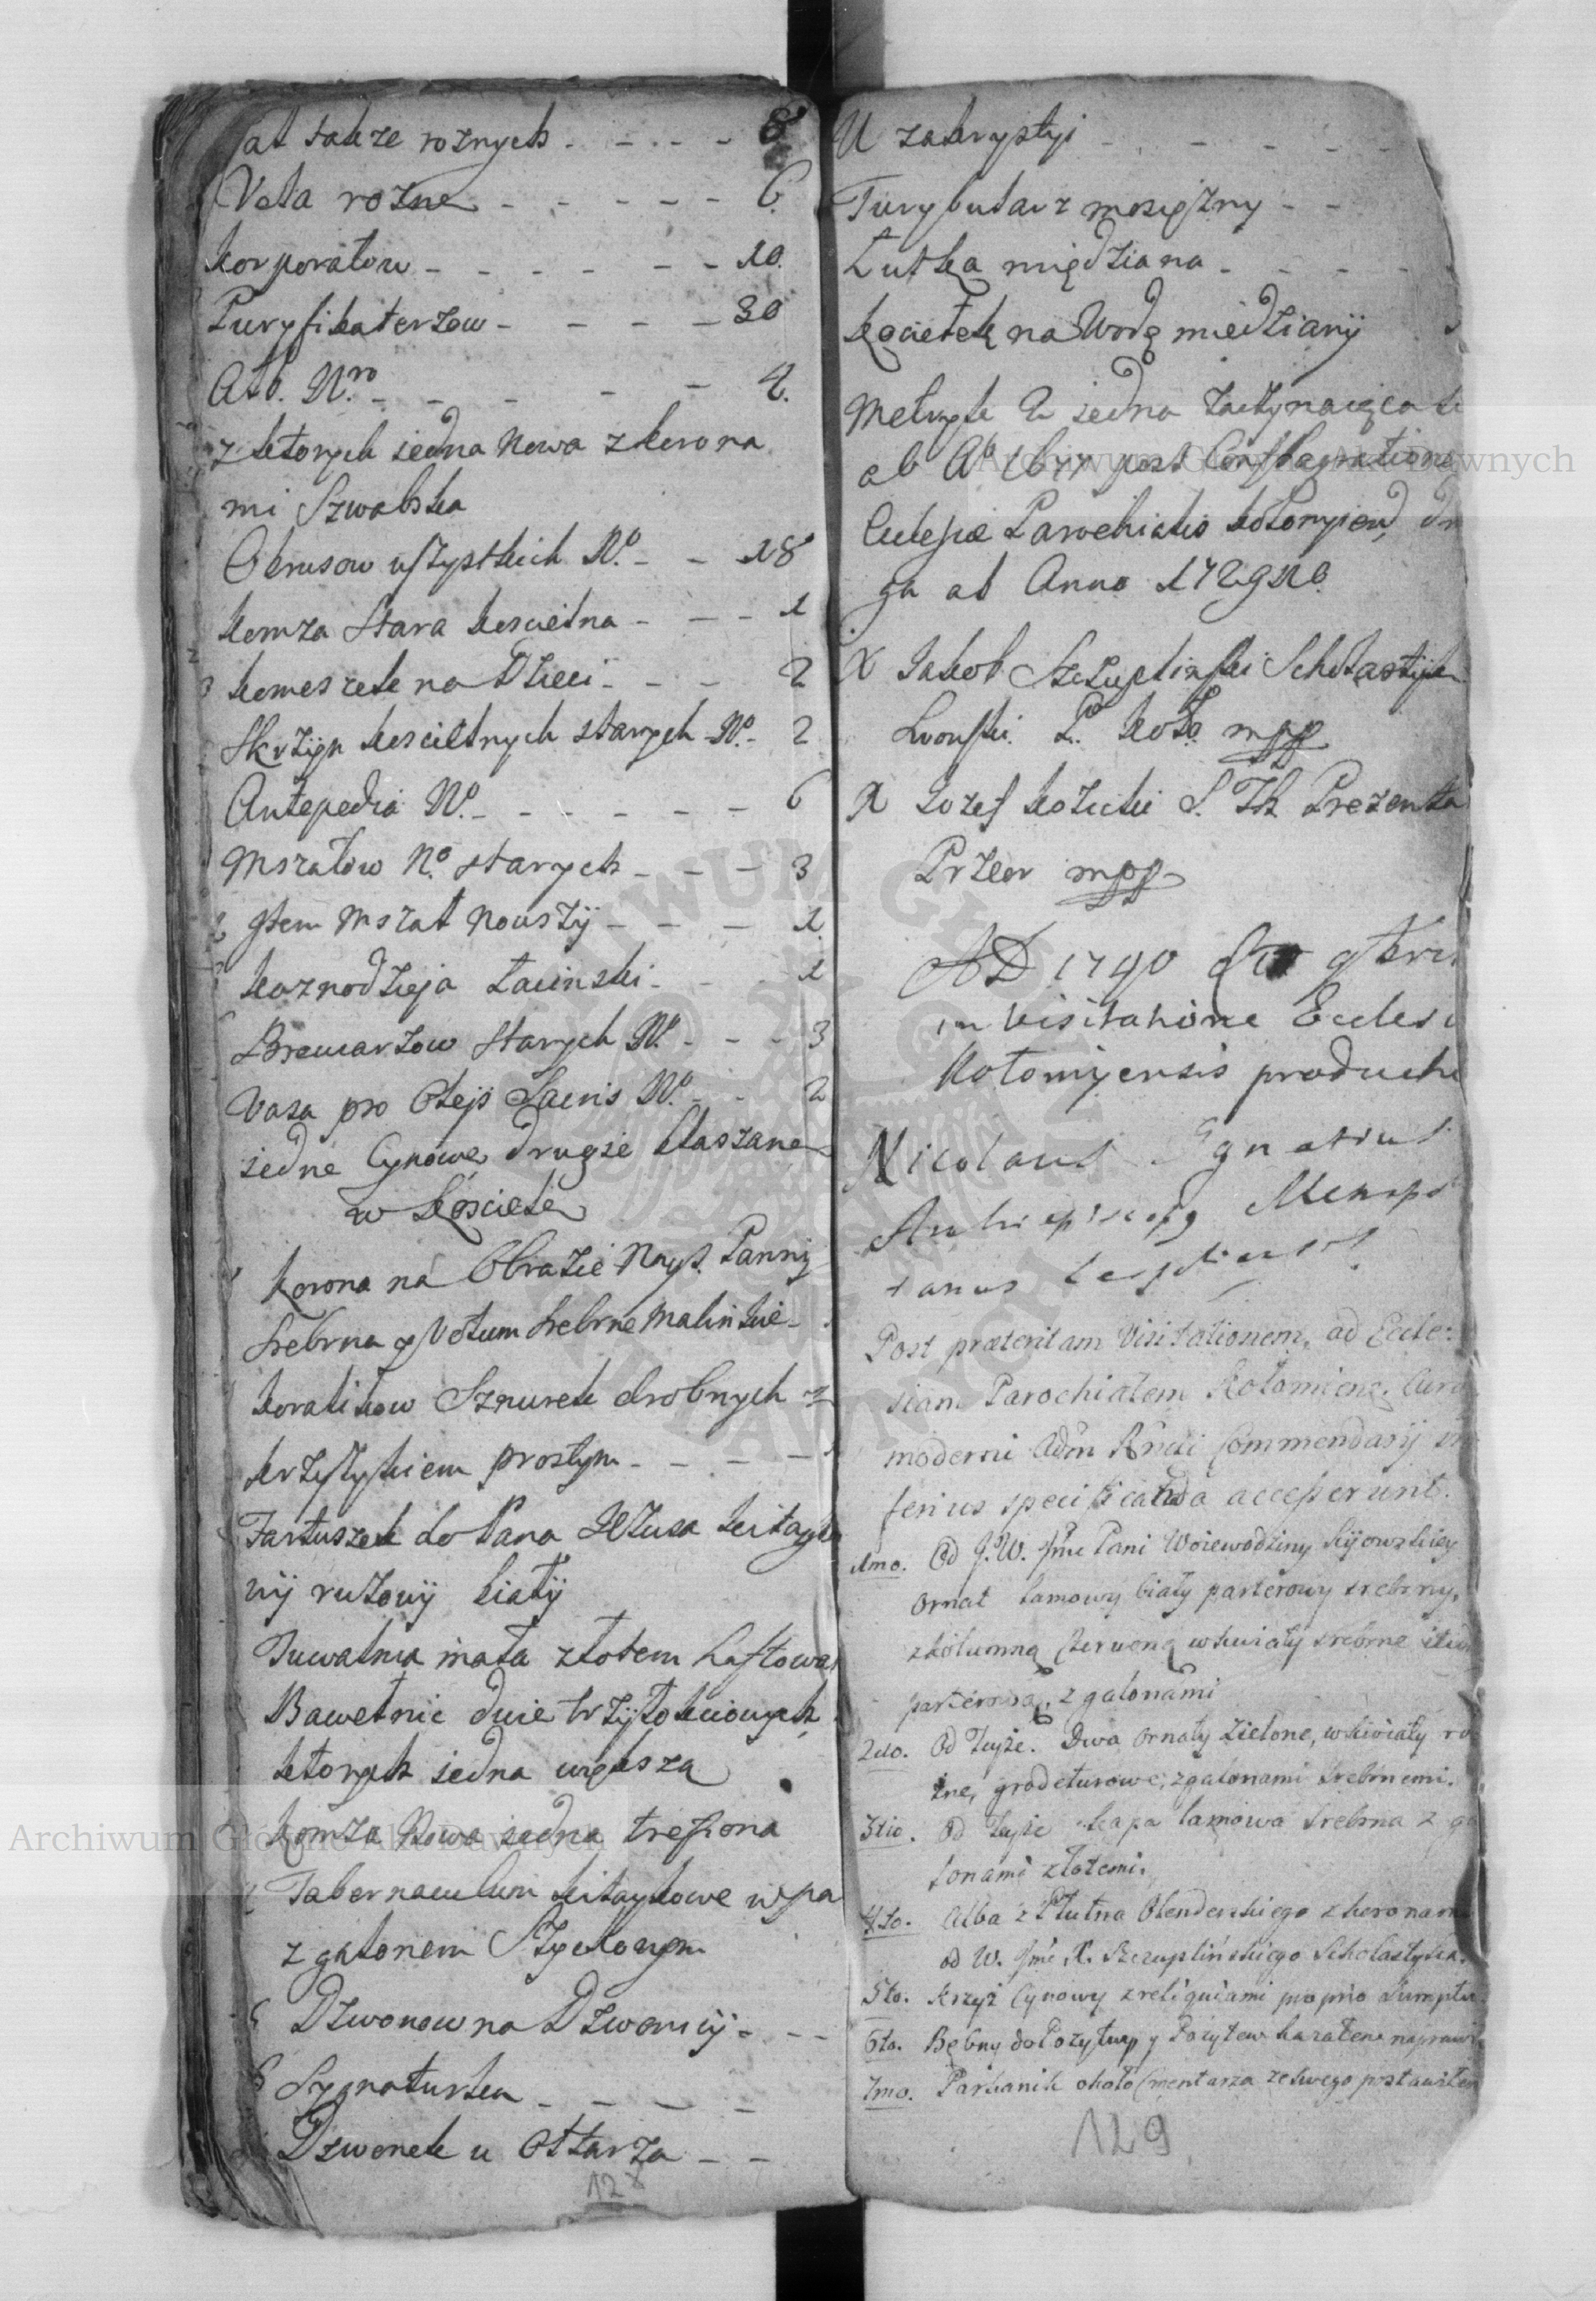 Pat także roznych - - - - 8
Vela rozne - - - - - 6
Korporałow - - - - - - 10.
Puryfikaterzow - - - - 30
Alb. Nro - - - - - 4.
z ktorych iedna Nowa z korona
mi Szwabska
Obrusow wszystkich No. - - 18
Komza Stara koscielna - - - 1
komeszek na Dzieci - - - 2
Skrzyn koscielnych starych No. - 2
Antepedia No. - - - - - - 6
Mszałow No. starych - - - 3
Item Mszał Nowszy - - - 1.
Kaznodzieja Łacinski - - - 1
Brewiarzow Starych No. - - - 3
Vasa pro Oleis Sacris No. - - 2
iedne Cynowe, drugie blaszane
w Kosciele
Korona na Obrazie Nays. Panny
srebrna y Votum srebrne Malinkie -
Koralikow Sznurek drobnych z
krzyżykiem prostym - - - -
Fartuszek do Pana JEzusa kitayko
wy rużowy biały
Tuwalnia mała złotem haftowa
Bawełnic dwie trzyłokciowych
ktorych iedna większa
Komża Nowa iedna
Tabernaculum kitaykowe w pa
z galonem Szychowym
Dzwonow na Dzwonicy - - -
Sygnaturka - - - -
Dzwonek u Ołtarza - -
128
U zakrystyi - - - - -
Turybularz mosiężny - -
Łutka miedziana - - - -
kociełek na Wodę miedziany
Metryk 2 iedna zaczynaiąca
ab Ao 1677 post Conflagrationem
Ecclesiæ Parochialis Kołomyien, dr
ga ab Anno 1729no.
X Jakob Szczupliński Scholastyk
Lwowski. P. Koło. mpp
X Jozef Kozicki S. Th. Prezenta
Przeor mpp
AD 1790
in Visitatione Ecclesi
Kołomyensis producti
Nicolaus Ignatius
Archiepiscop
Post præteritam Visitationem, ad Eccle:
siam Parochialem Kołomiens, Cura
moderni Adm Rndi Commendarij in
ferius specificanda accesserunt.
1mo. Od J. W. Jmć Pani Woiewodziny Kijowskiey
ornat lamowy biały parterowy srebrny,
z kolumną czerwoną w kwiaty srebrne
parterową, z galonami
2do. Od Teyże. Dwa ornaty Zielone, w kwiaty ro
żne, grodeturowe, z galonami srebrnemi.
3tio. Od Teyże kapa lamowa srebrna z ga
lonami złotemi.
4to. Alba z Płutna Olenderskiego z koronam
od W. Jmć. X. Szczuplińskiego Scholastyka.
5to. Krzyż Cynowy z reliquiami proprio sumptu.
6to. Bębny do Pozytywy y Pozytew kazałem naprawi
7mo. Parkanik około Cmentarza ze swego postawiłem
129
Archiwum Główne Akt Dawnych
Archiwum Główne Akt Dawnych